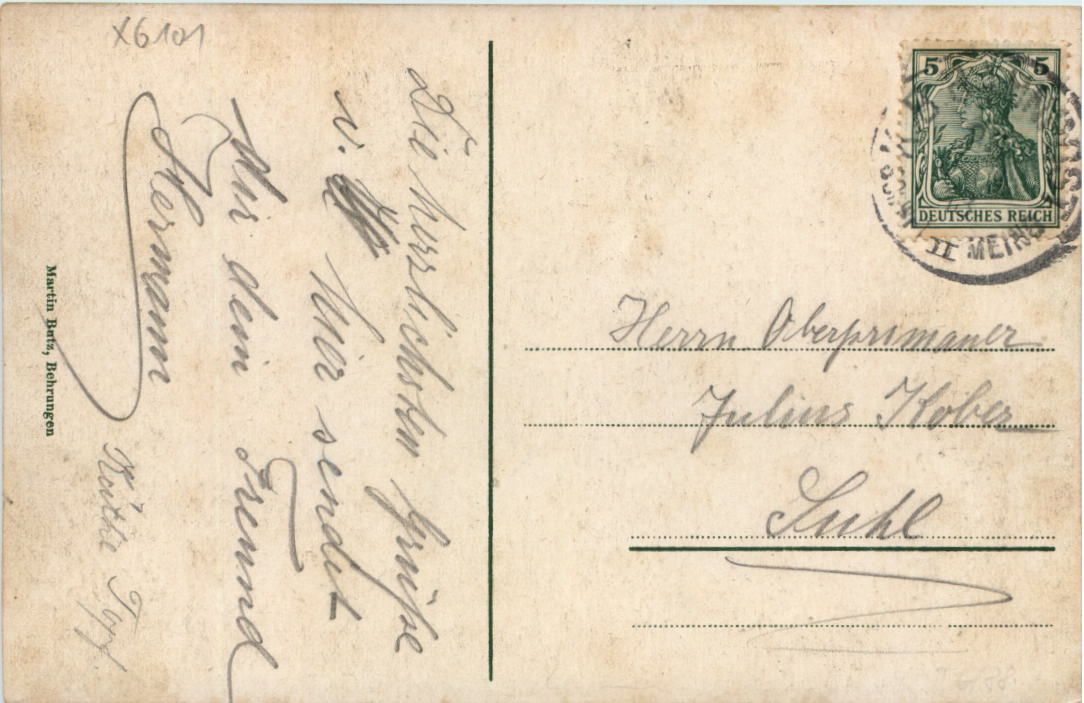 X6101
Die herzlichsten Grüße
v. hier sendet
Dir dein Freund
Hermann
Käthe
Martin Butz, Behrungen
5 5
DEUTSCHES REICH
MEIN
II
Herrn Oberprimaner
Julius Kober
Suhl